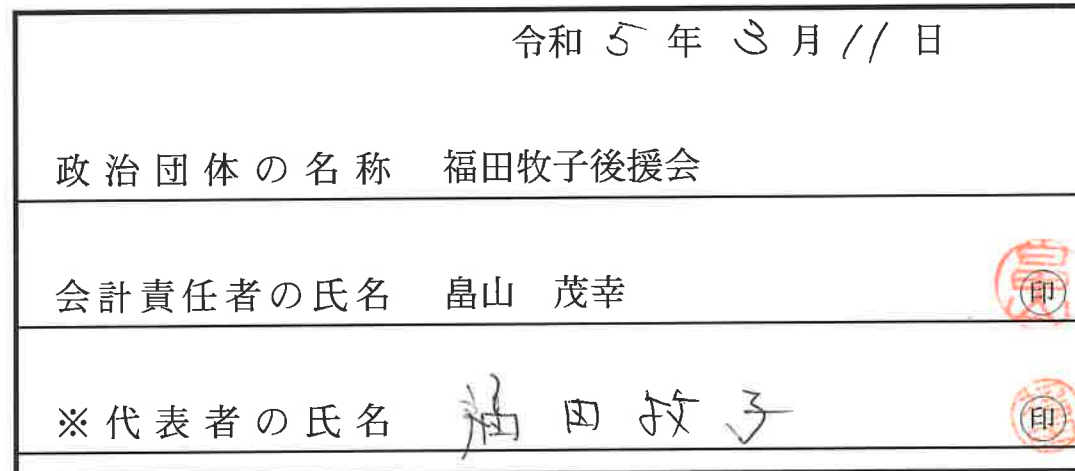 令和 5 年 3 月 11 日
政治団体の名称 福田牧子後援会
会計責任者の氏名 畠山 茂幸 印
※代表者の氏名 福田牧子 印